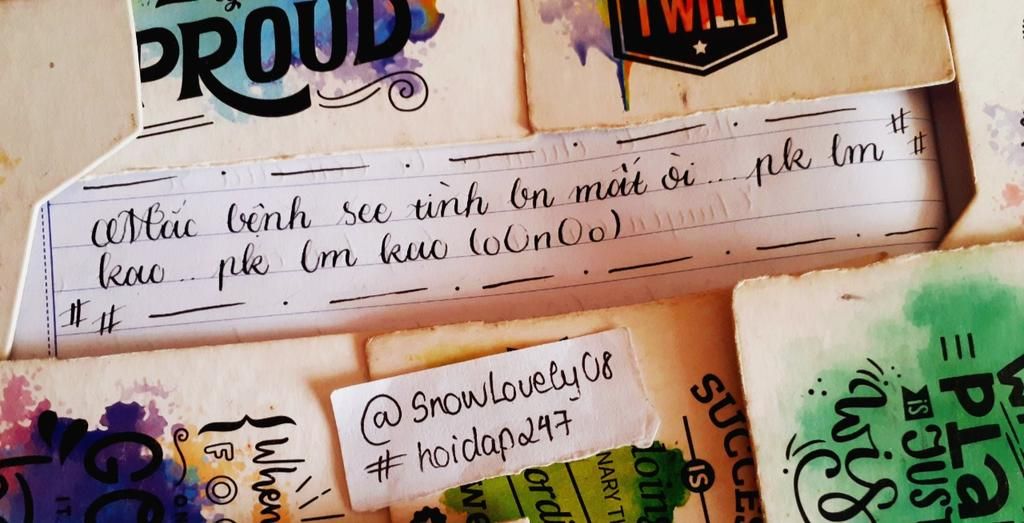 PROUD
I WILL
Mắc bệnh see tình bn mất òi... pk lm
kao... pk lm kao (oUnUo)
@SnowLovely08
#hoidap247
{When
SUCCES
IS
NARY TH
IS JUST